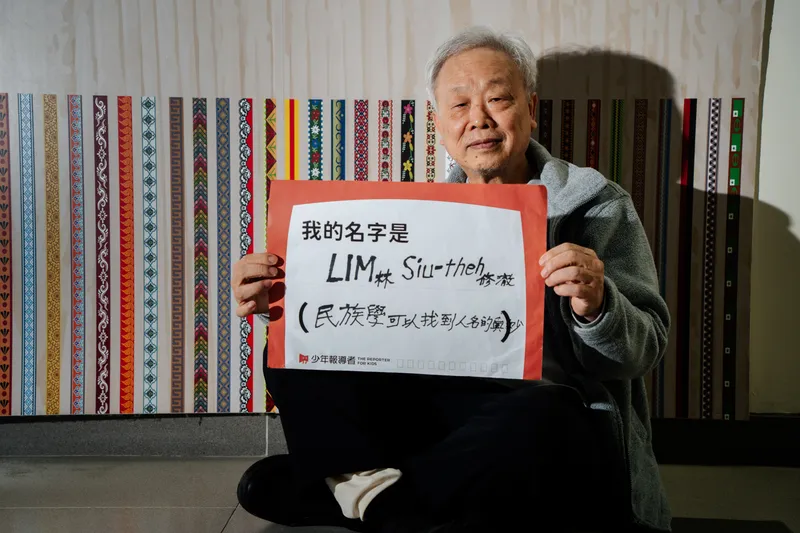 我的名字是
LIM林 Siu-theh修澈
(民族學可以找到人名的奧妙)
少年報導者 THE REPORTER FOR KIDS